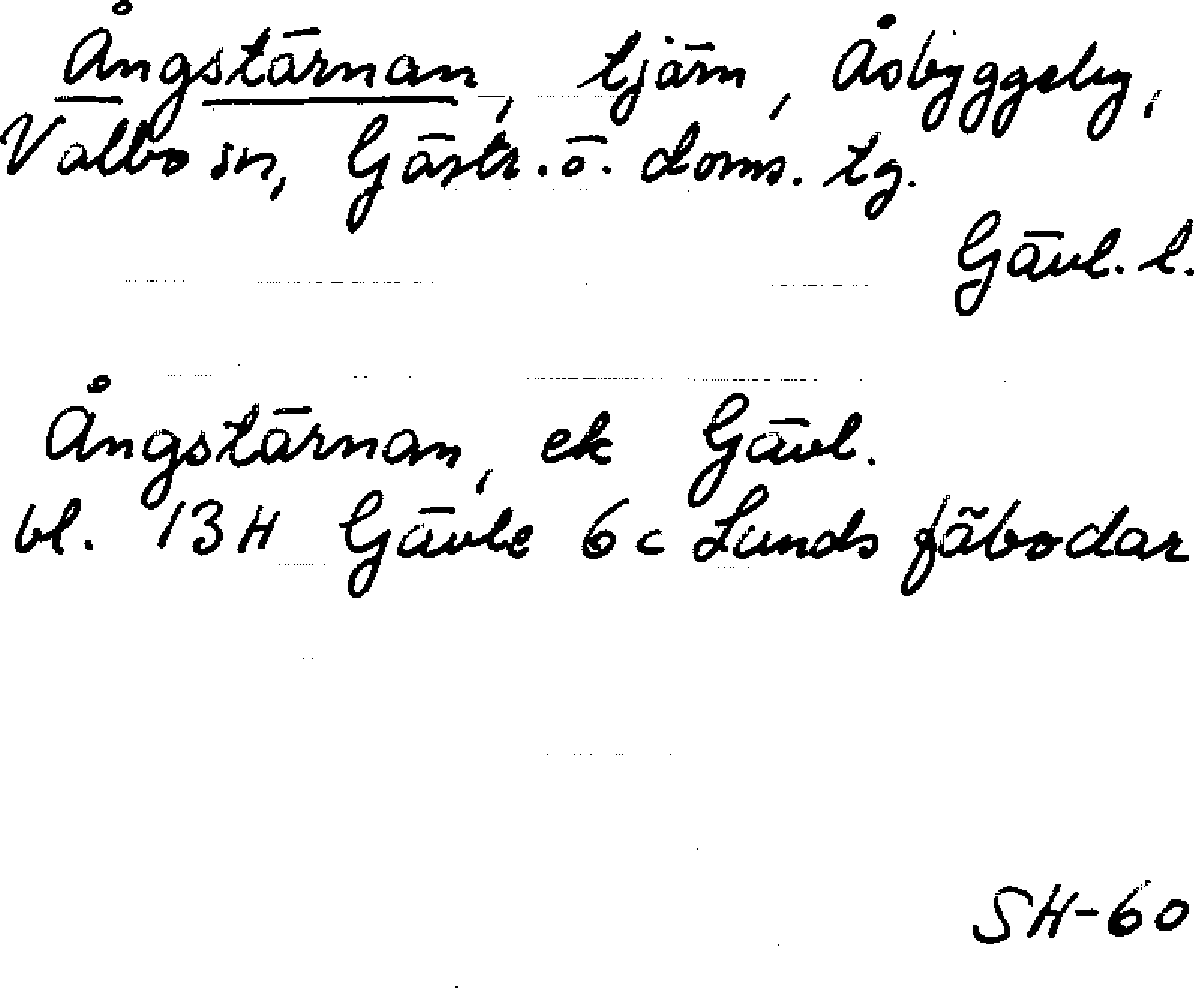 Ångstärnan, tjärn, Åsbyggeby,
Valbo sn, Gästr. ö. doms. tg.
Gävl. l.
Ångstärnan, ek Gävl.
bl. 13H Gävle 6c Lunds fäbodar
SH-60